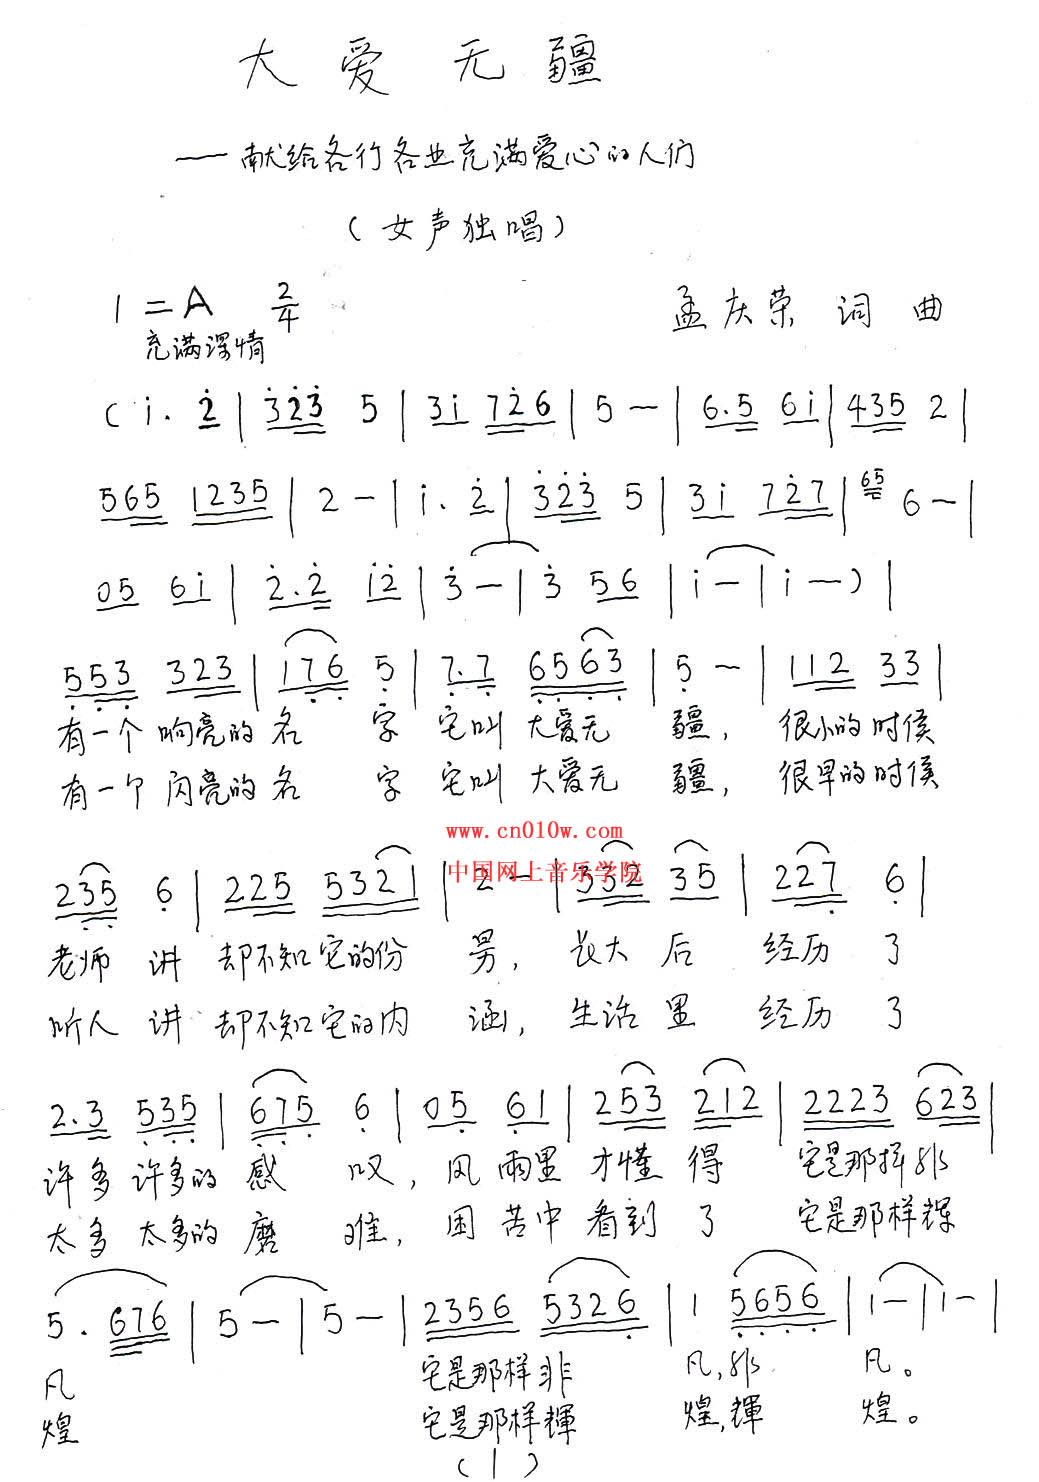 大爱无疆
——献给各行各业充满爱心的人们
（女声独唱）
1=A 2/4 孟庆荣 词 曲
充满深情
( i̇. 2̇ | 3̇2̇3̇ 5 | 3i̇ 72̇6 | 5 — | 6.5 6i̇ | 435 2 |
565 1235 | 2 — | i̇. 2̇ | 3̇2̇3̇ 5 | 3i̇ 72̇7 | 65 6 — |
05 6i̇ | 2̇.2̇ i̇2̇ | 3̇ — | 3̇ 56 | i̇ — | i̇ — ) |
5̣5̣3̣ 323 | 17̣6̣ 5̣ | 7̣.7̣ 6̣5̣6̣3̣ | 5̣ — | 112 33 |
有一个 响亮的 名 字 它叫 大爱无 疆， 很小的 时候
有一个 闪亮的 名 字 它叫 大爱无 疆， 很早的 时候
www.cn010w.com
中国网上音乐学院
23̣5̣ 6̣ | 225 5321 | 2 — | 332 35 | 227̣ 6̣ |
老师 讲 却不知 它的份 男， 长大 后 经历 了
听人 讲 却不知 它的内 涵， 生活 里 经历 了
2.3 5̣3̣5̣ | 6̣7̣5̣ 6̣ | 05̣ 6̣1 | 253 212 | 2223 623 |
许多 许多的 感 叹， 风 雨里 才懂 得 它是那样 非
太多 太多的 磨 难， 困 苦中 看到 了 它是那样 辉
5. 676 | 5 — | 5 — | 2356 5326̣ | 1 5̣6̣5̣6̣ | 1 — | 1 — |
凡 它是那样 非 凡，非 凡。
煌 它是那样 輝 煌，輝 煌。
(1)